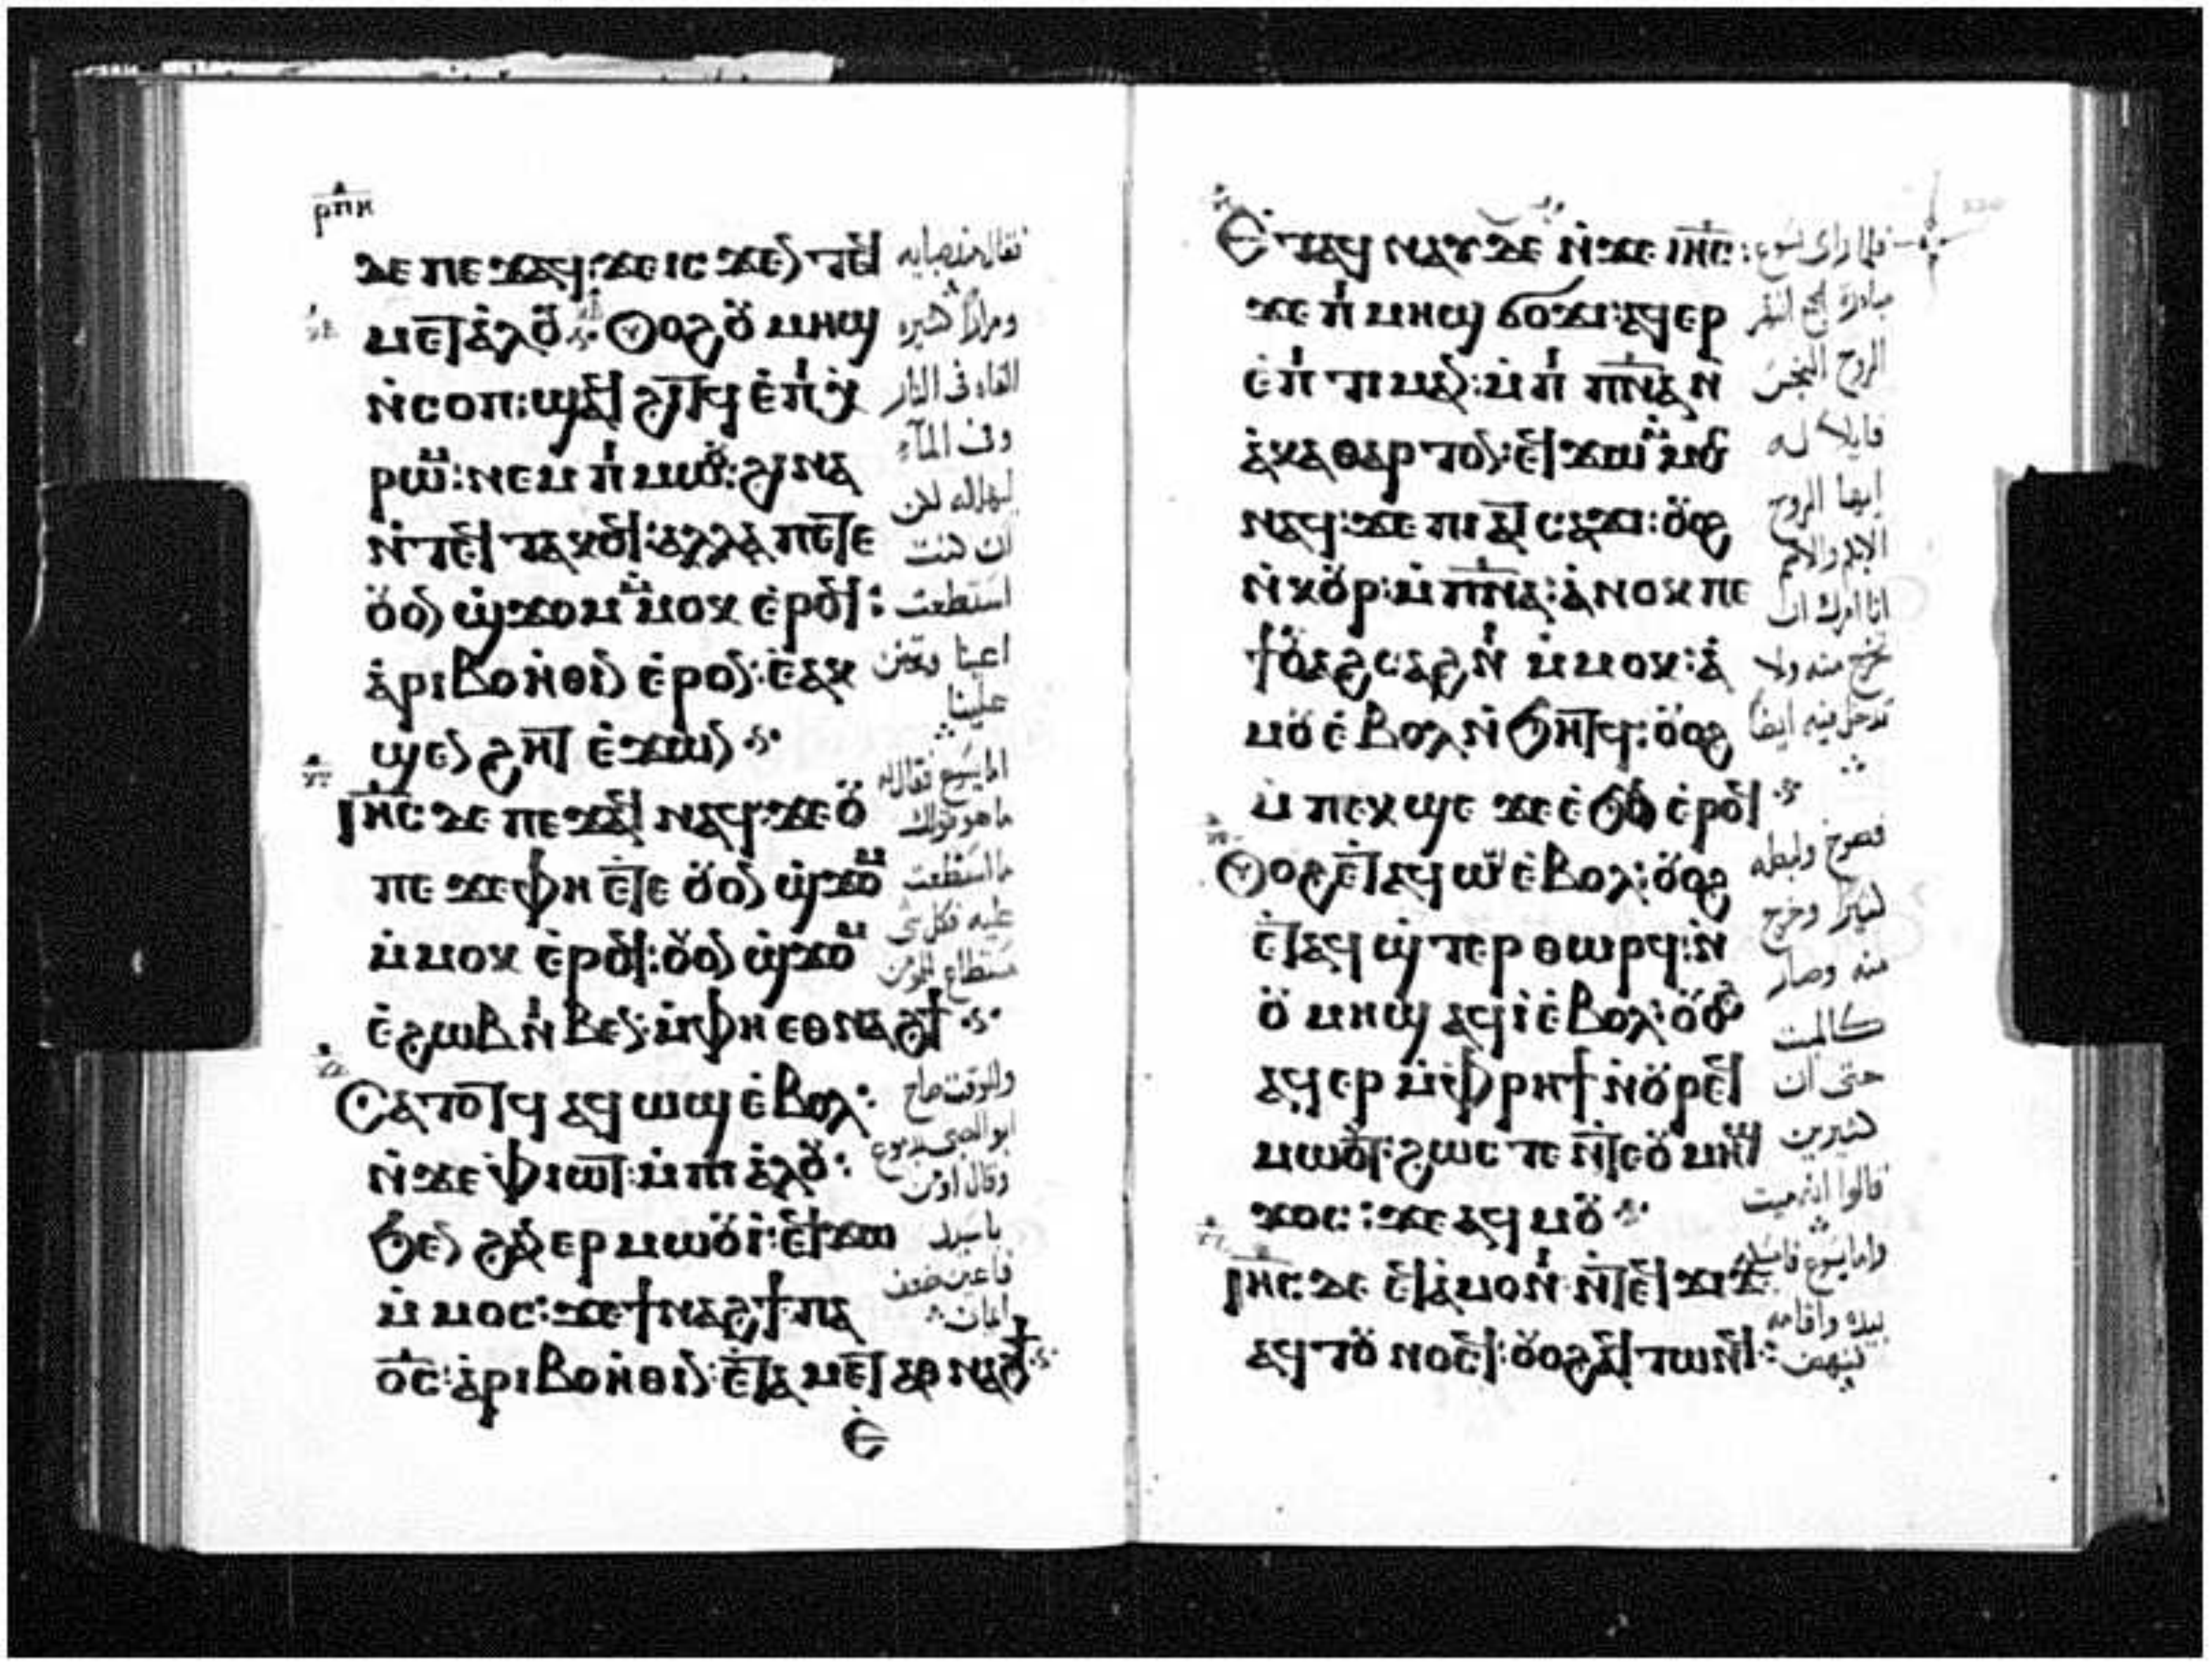 ⲣⲡⲏ
ⲇⲉ ⲡⲉϫⲁϥ:ϫⲉⲓⲥϫⲉⲛ ⲧⲉϥ
ⲙⲉⲧⲁⲗⲟⲩ Ⲟⲩⲟϩ ⲟⲩⲙⲏϣ
ⲛ̀ⲥⲟⲡ:ϣⲁϥϩⲓⲧϥ ⲉ̀ⲡⲓⲭ
ⲣⲱⲙ:ⲛⲉⲙ ⲡⲓⲙⲱⲟⲩ:ϩⲓⲛⲁ
ⲛ̀ⲧⲉϥⲧⲁⲕⲟϥ:ⲁⲗⲗⲁ ⲡⲉⲧⲉ
ⲟⲩⲟⲛ ϣϫⲟⲙ ⲙ̀ⲙⲟⲕ ⲉ̀ⲣⲟϥ:
ⲁ̀ⲣⲓⲃⲟⲏ̀ⲑⲓⲛ ⲉ̀ⲣⲟⲛ:ⲉ̀ⲁⲕ
ϣⲉⲛϩⲏⲧ ⲉ̀ϫⲱⲛ
Ⲓⲏ̅ⲥ̅ ⲇⲉ ⲡⲉϫⲁϥ ⲛⲁϥ:ϫⲉⲟⲩ
ⲡⲉ ϫⲉⲫⲏ ⲉ̀ⲧⲉ ⲟⲩⲟⲛ ϣϫⲟⲙ
ⲙ̀ⲙⲟⲕ ⲉ̀ⲣⲟϥ:ⲟⲩⲟⲛ ϣϫⲟⲙ
ⲉ̀ϩⲱⲃ ⲛⲓⲃⲉⲛ:ⲙ̀ⲫⲏ ⲉⲑⲛⲁϩϯ
Ⲥⲁⲧⲟⲧϥ ⲁϥⲱϣ ⲉ̀ⲃⲟⲗ:
ⲛ̀ϫⲉ ⲫⲓⲱⲧ:ⲙ̀ⲡⲓⲁ̀ⲗⲟⲩ:
ϧⲉⲛ ϩⲁⲛⲉⲣⲙⲱⲟⲩⲓ̀:ⲉϥϫⲱ
ⲙ̀ⲙⲟⲥ:ϫⲉϯⲛⲁϩϯ ⲡⲁ
ⲟ̅ⲥ̅:ⲁ̀ⲣⲓⲃⲟⲏ̀ⲑⲓⲛ:ⲉ̀ⲧⲁⲙⲉⲧⲁⲑⲛⲁϩϯ
ⲉ̀
فقال منذ صباه
ومرارا كثيره
القاه في النار
وفي المآء
ليهلكه لكن
ان كنت
استطعت
اعينا وتحنن
علينا
اما يسوع فقال له
ما هو قولك
ما استطعت
عليه فكل شي
مستطاع للمومن
وللوقت صاح
ابو الصبي بدموع
وقال اومن
يا سيد
فاعين ضعف
ايماني
Ⲉ̀ⲧⲁϥⲛⲁⲩ ⲇⲉ ⲛ̀ϫⲉ ⲓⲏ̅ⲥ̅:
ϫⲉ ⲡⲓⲙⲏϣ ϭⲟϫⲓ:ⲁϥⲉⲣ
ⲉ̀ⲡⲓⲧⲓⲙⲁⲛ:ⲙ̀ⲡⲓⲡ̅ⲛ̅ⲁ̅ ⲛ̀
ⲁ̀ⲕⲁⲑⲁⲣⲧⲟⲛ:ⲉϥϫⲱ ⲙ̀ⲙⲟⲥ
ⲛⲁϥ:ϫⲉ ⲡⲓⲁⲧⲥⲁϫⲓ:ⲟⲩⲟϩ
ⲛ̀ⲕⲟⲩⲣ:ⲙ̀ⲡ̅ⲛ̅ⲁ̅:ⲁ̀ⲛⲟⲕ ⲡⲉ
ϯⲟⲩⲁϩⲥⲁϩⲛⲓ ⲙ̀ⲙⲟⲕ:ⲁ̀
ⲙⲟⲩ ⲉ̀ⲃⲟⲗ ⲛ̀ϧⲏⲧϥ:ⲟⲩⲟϩ
ⲙ̀ⲡⲉⲣϣⲉ ϫⲉ ⲉ̀ϧⲟⲩⲛ ⲉ̀ⲣⲟϥ
Ⲟⲩⲟϩ ⲉ̀ⲧⲁϥⲱϣ ⲉ̀ⲃⲟⲗ:ⲟⲩⲟϩ
ⲉ̀ⲧⲁϥϣⲧⲉⲣⲑⲱⲣϥ:ⲛ̀
ⲟⲩⲙⲏϣ ⲁϥⲓ̀ ⲉ̀ⲃⲟⲗ:ⲟⲩⲟϩ
ⲁϥⲉⲣ ⲙ̀ⲫⲣⲏϯ ⲛ̀ⲟⲩⲣⲉϥ
ⲙⲱⲟⲩⲧ:ϩⲱⲥⲧⲉ ⲛ̀ⲧⲉⲟⲩⲙⲏϣ
ϫⲟⲥ:ϫⲉ ⲁϥⲙⲟⲩ
Ⲓⲏ̅ⲥ̅ ⲇⲉ ⲉ̀ⲧⲁ̀ⲙⲟⲛⲓ ⲛ̀ⲧⲉϥϫⲓϫ
ⲁϥⲧⲟⲩⲛⲟⲥϥ:ⲟⲩⲟϩ ⲁϥⲧⲱⲛϥ:
فلما راى يسوع
الروح النجس
قايلا له
ايها الروح
انا امرك ان
تخرج منه ولا
تدخل فيه ايضا
فصرخ ولبطه
كثيرا وخرج
منه وصار
كالميت
حتى ان
كثيرين
قالوا انه ميت
بيده واقامه
فنهض